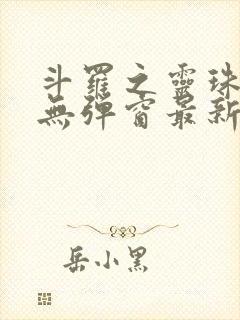 斗羅之靈珠
無彈窗最新
岳小黑